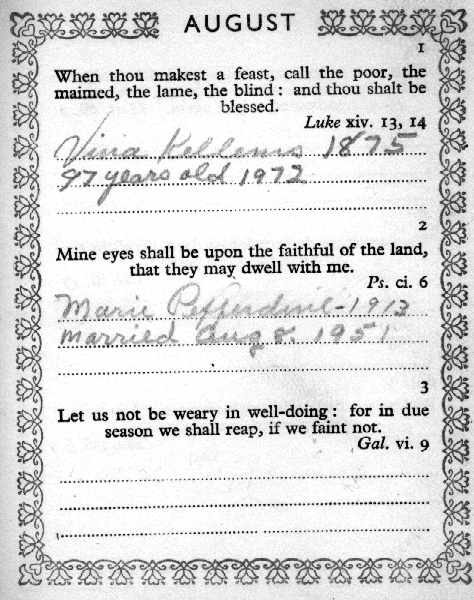 AUGUST
1
When thou makest a feast, call the poor, the
maimed, the lame, the blind : and thou shalt be
blessed.
Luke xiv. 13, 14
Vina Kellems 1875
97 years old 1972
2
Mine eyes shall be upon the faithful of the land,
that they may dwell with me.
Ps. ci. 6
Marie - 1913
Married Aug 8. 1951
3
Let us not be weary in well-doing : for in due
season we shall reap, if we faint not.
Gal. vi. 9